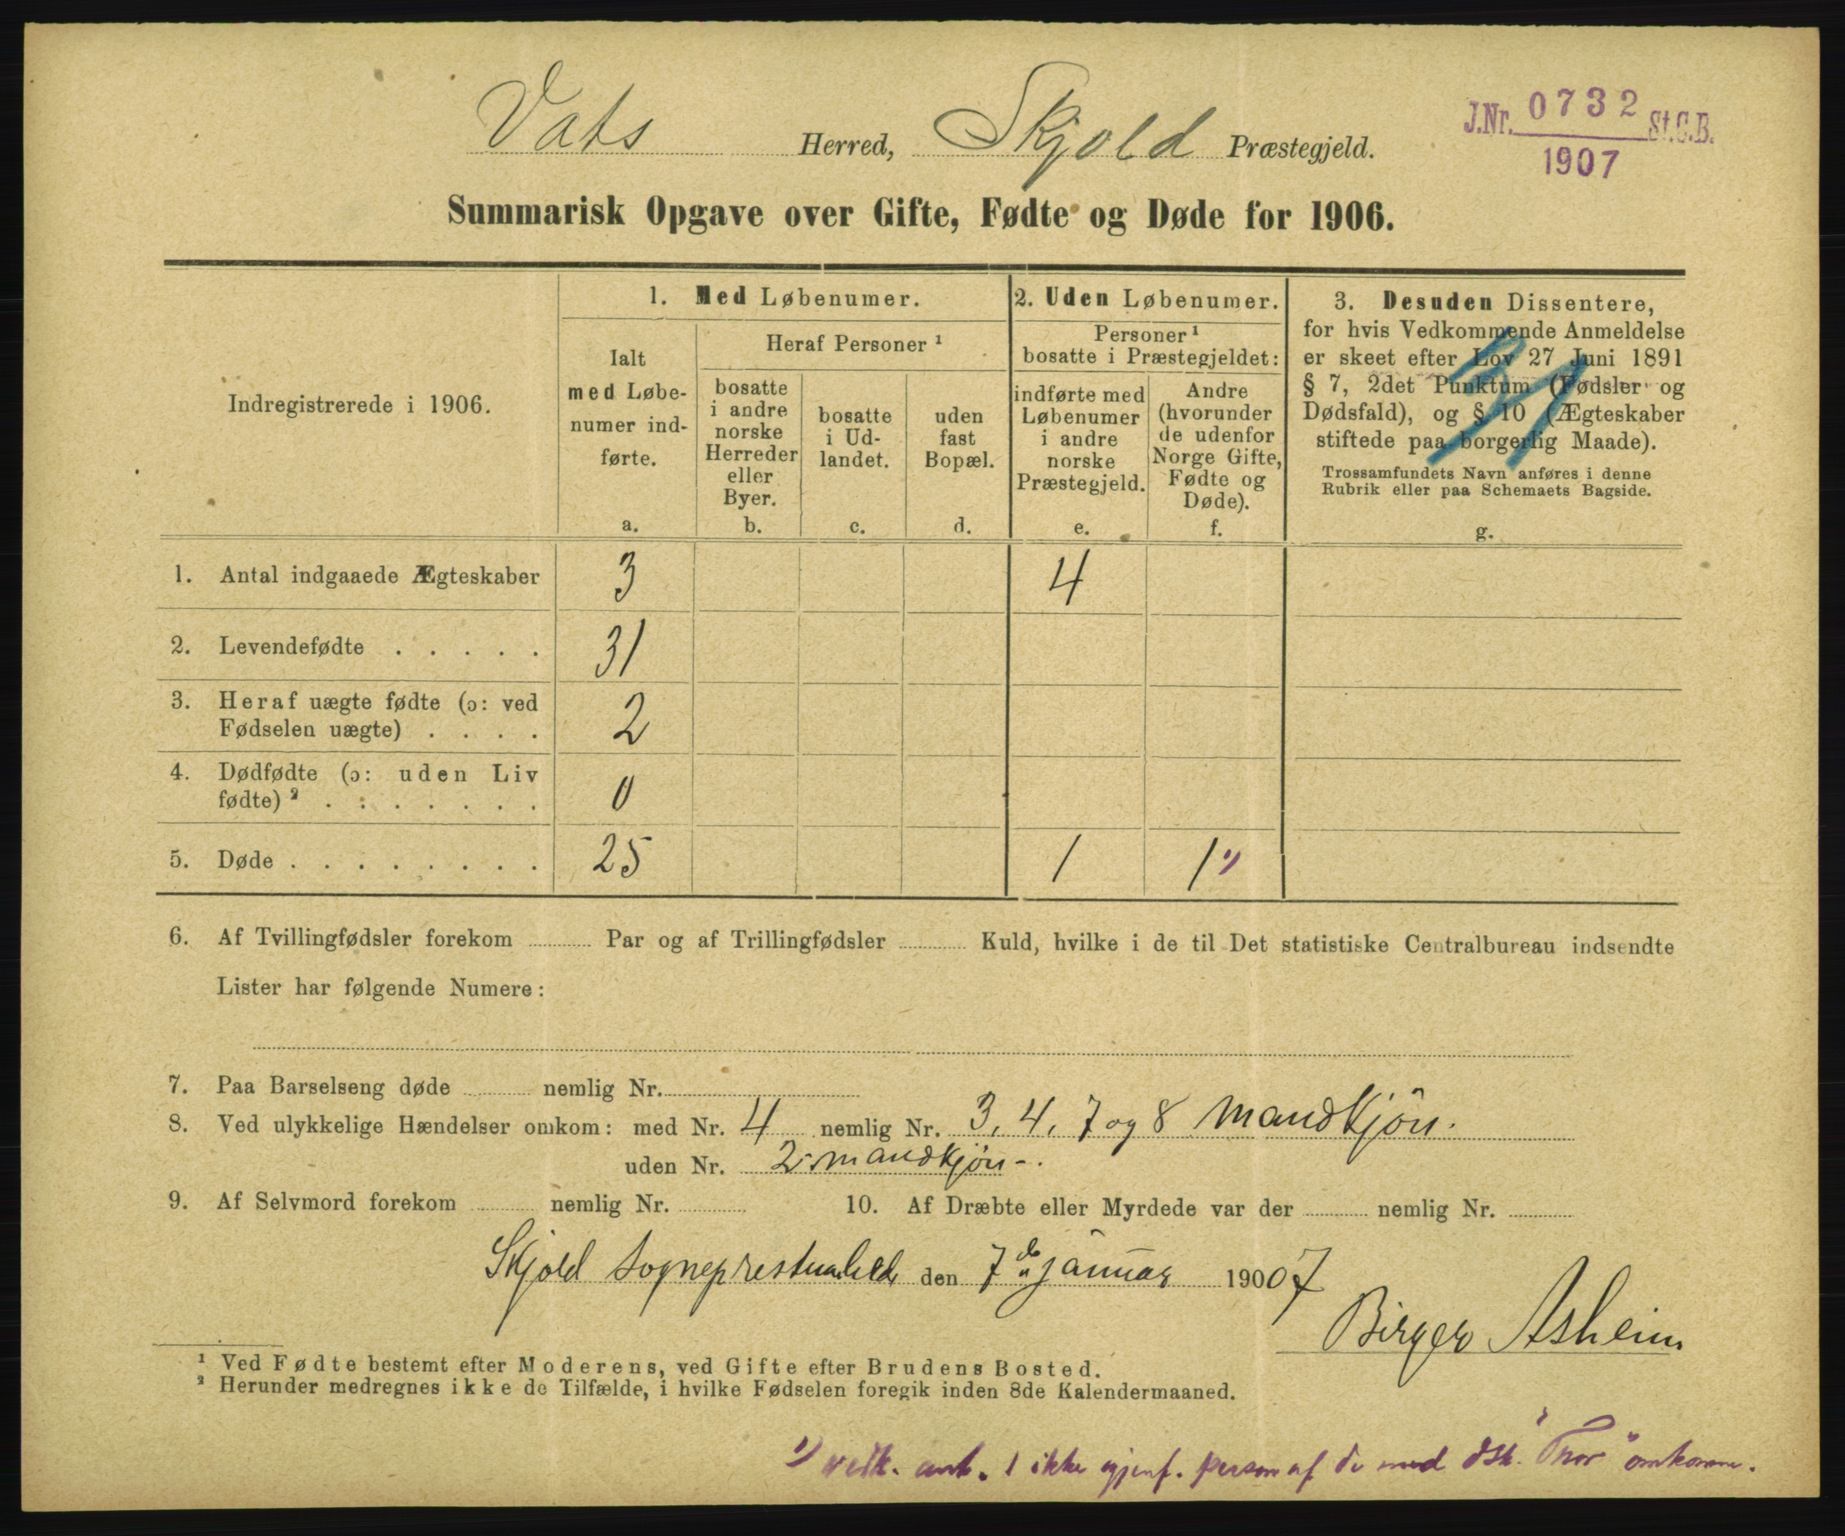 Vats Herred, Skjold Præstegjeld.
J.Nr. 0732 St.C.B.
1907
Summarisk Opgave over Gifte, Fødte og Døde for 1906.
Indregistrerede i 1906.
1. Med Løbenumer.
Ialt
med Løbe-
numer ind-
førte.
a.
Heraf Personer ¹
bosatte
i andre
norske
Herreder
eller
Byer.
b.
bosatte
i Ud-
landet.
c.
uden
fast
Bopæl.
d.
2. Uden Løbenumer.
Personer ¹
bosatte i Præstegjeldet:
indførte med
Løbenumer
i andre
norske
Præstegjeld.
e.
Andre
(hvorunder
de udenfor
Norge Gifte,
Fødte og
Døde).
f.
3. Desuden Dissentere,
for hvis Vedkommende Anmeldelse
er skeet efter Lov 27 Juni 1891
§ 7, 2det Punktum (Fødsler og
Dødsfald), og § 10 (Ægteskaber
stiftede paa borgerlig Maade).
Trossamfundets Navn anføres i denne
Rubrik eller paa Schemaets Bagside.
g.
1. Antal indgaaede Ægteskaber 3 4
2. Levendefødte . . . . . 31
3. Heraf uægte fødte (ɔ: ved
Fødselen uægte) . . . . 2
4. Dødfødte (ɔ: uden Liv
fødte) ² . . . . . . . 0
5. Døde . . . . . . . . 25 1 1 ¹)
6. Af Tvillingfødsler forekom Par og af Trillingfødsler Kuld, hvilke i de til Det statistiske Centralbureau indsendte
Lister har følgende Numere:
7. Paa Barselseng døde nemlig Nr.
8. Ved ulykkelige Hændelser omkom: med Nr. 4 nemlig Nr. 3, 4, 7 og 8 Mandkjön.
uden Nr. 2 mandkjön -.
9. Af Selvmord forekom nemlig Nr. 10. Af Dræbte eller Myrdede var der nemlig Nr.
Skjold Sogneprestembede den 7de januar 1907
Birger Asheim
¹ Ved Fødte bestemt efter Moderens, ved Gifte efter Brudens Bosted.
² Herunder medregnes ikke de Tilfælde, i hvilke Fødselen foregik inden 8de Kalendermaaned.
¹) 1 ikke gjenf. person af de med dsk. "Thor" omkomne.